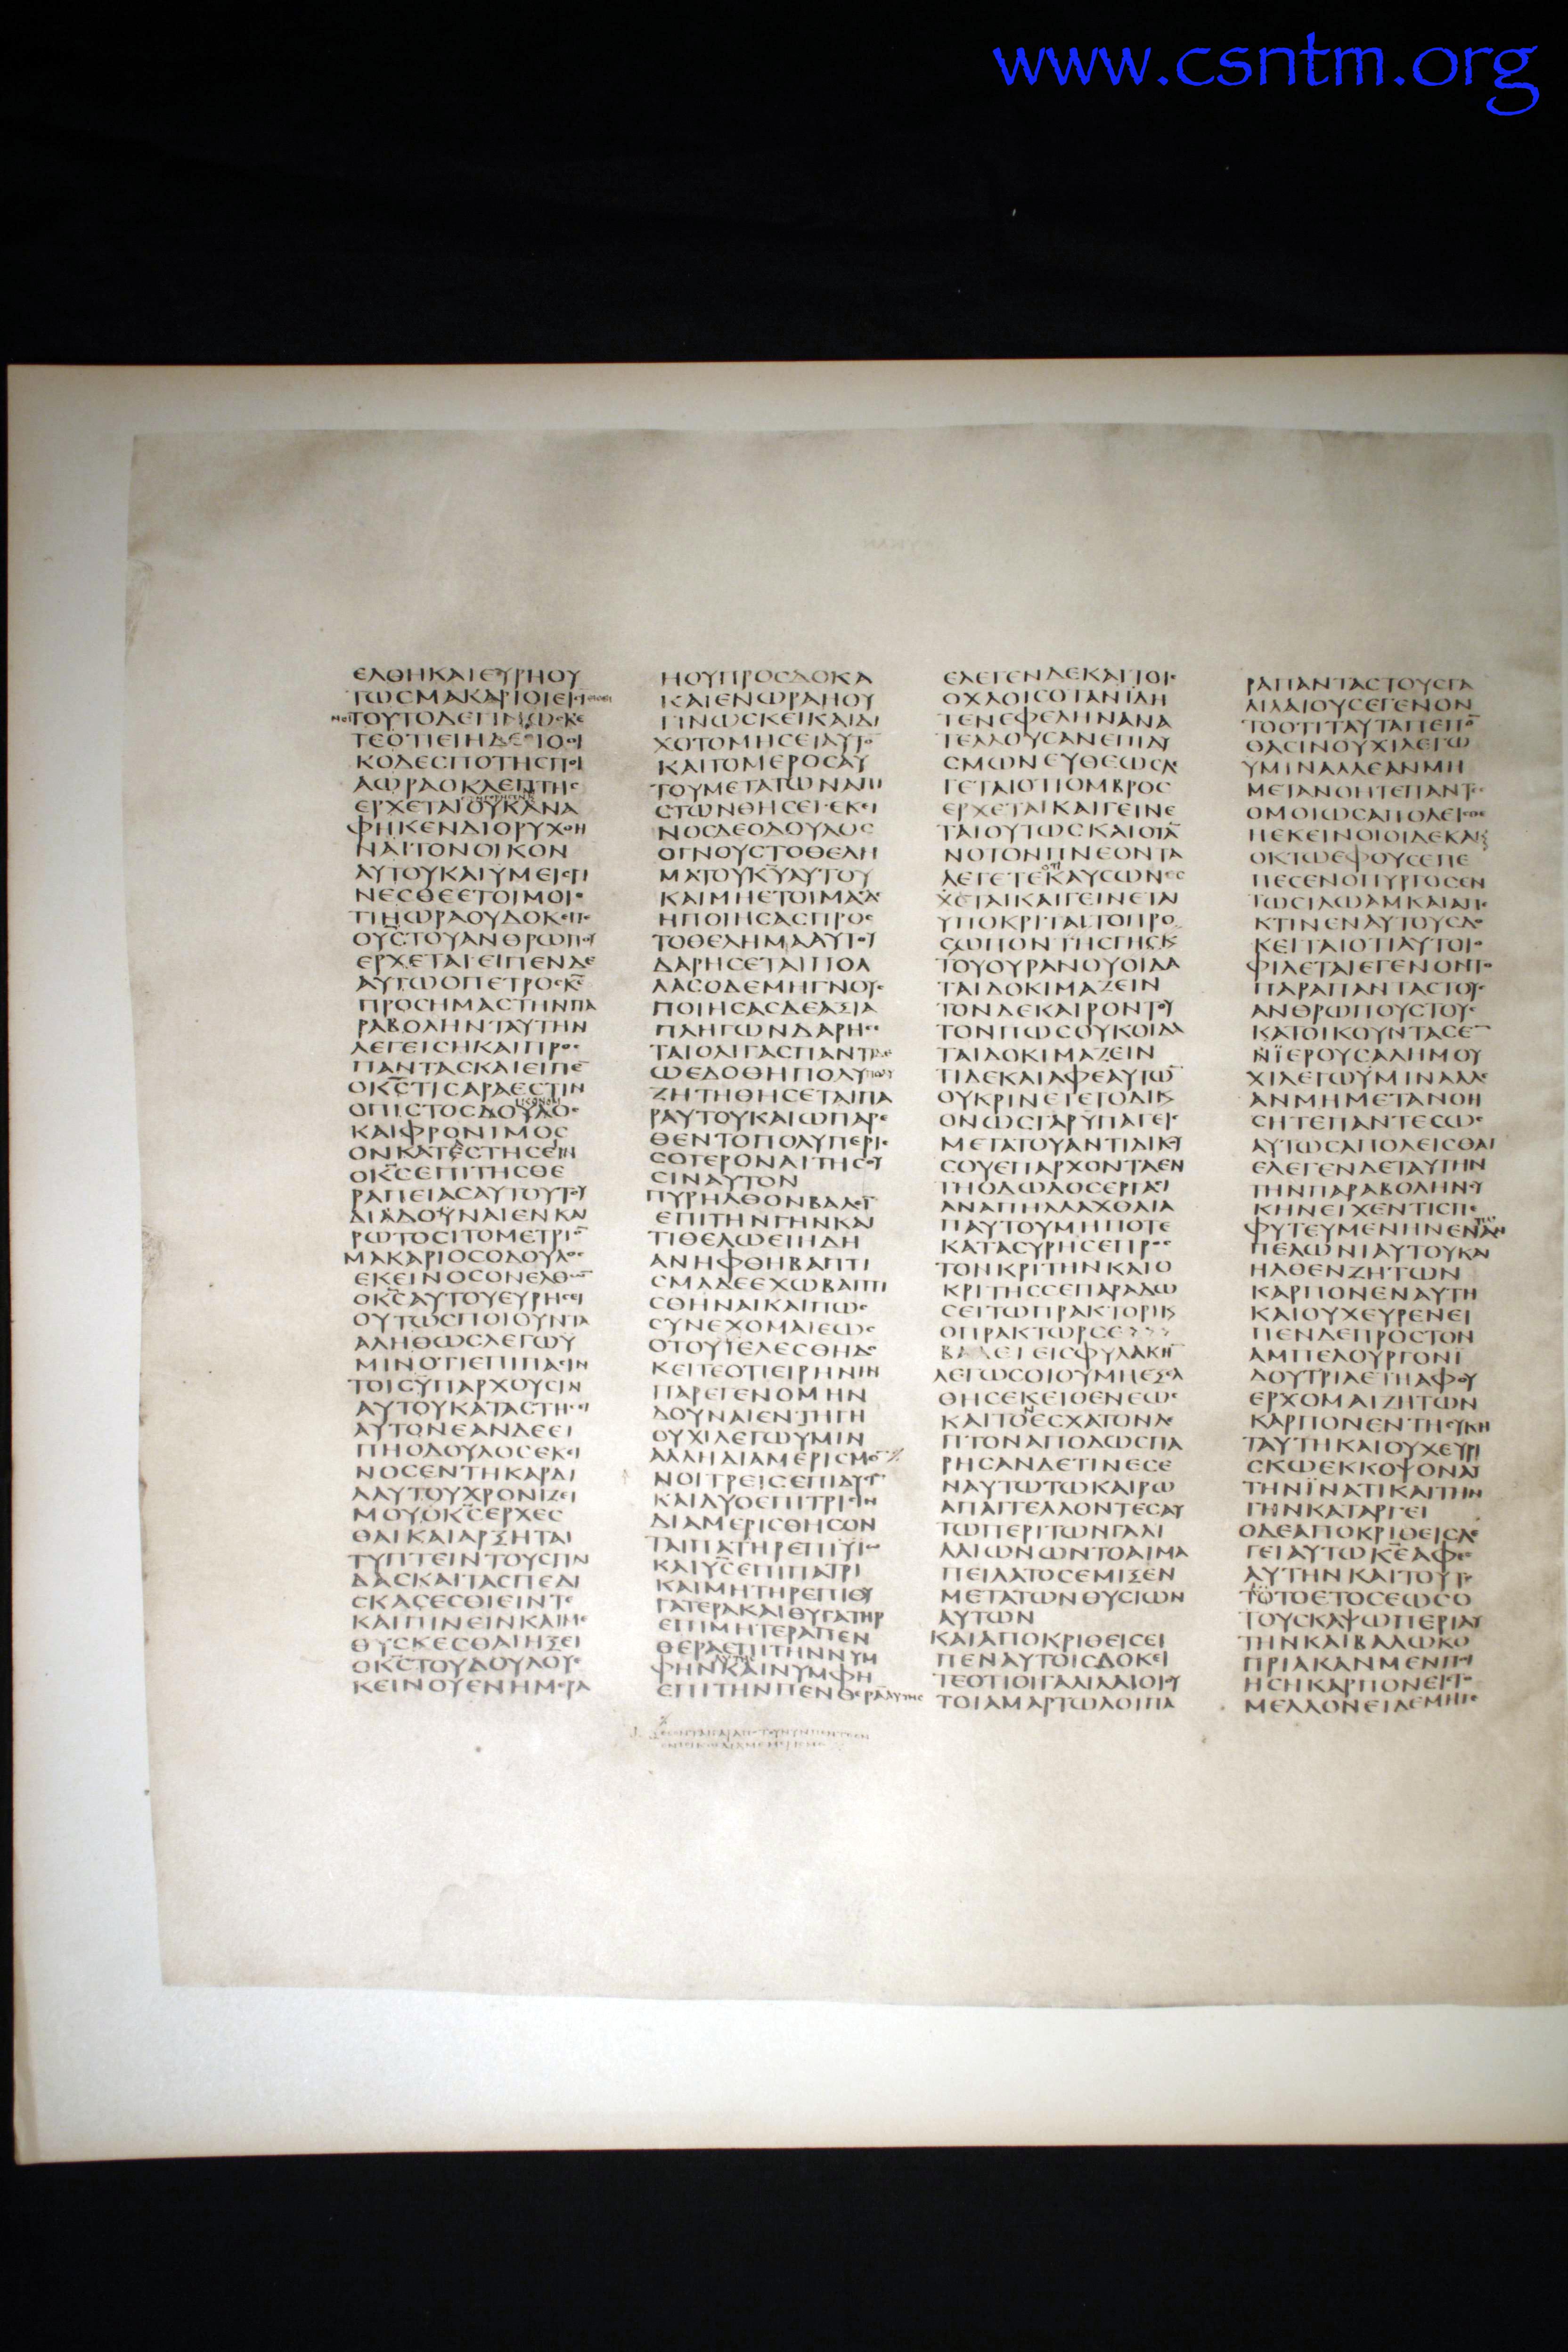 www.csntm.org
ΕΛΘΗΚΑΙΕΥΡΗΟΥ
ΤΩϹΜΑΚΑΡΙΟΙΕΙϹΙ
ΤΟΥΤΟΔΕΓΙΝΩϹΚΕ
ΤΕΟΤΙΕΙΗΔΕΙΟΟΙ
ΚΟΔΕϹΠΟΤΗϹΠΟΙ
ΑΩΡΑΟΚΛΕΠΤΗϹ
ΕΡΧΕΤΑΙΟΥΚΑΝΑ
ΦΗΚΕΝΔΙΟΡΥΧΘΗ
ΝΑΙΤΟΝΟΙΚΟΝ
ΑΥΤΟΥΚΑΙΥΜΕΙϹΓΙ
ΝΕϹΘΕΕΤΟΙΜΟΙΟ
ΤΙΗΩΡΑΟΥΔΟΚΕΙΤΕ
ΟΥϹΤΟΥΑΝΘΡΩΠΟΥ
ΕΡΧΕΤΑΙΕΙΠΕΝΔΕ
ΑΥΤΩΟΠΕΤΡΟϹΚΕ
ΠΡΟϹΗΜΑϹΤΗΝΠΑ
ΡΑΒΟΛΗΝΤΑΥΤΗΝ
ΛΕΓΕΙϹΗΚΑΙΠΡΟϹ
ΠΑΝΤΑϹΚΑΙΕΙΠΕ
ΟΚϹΤΙϹΑΡΑΕϹΤΙΝ
ΟΠΙϹΤΟϹΔΟΥΛΟϹ
ΚΑΙΦΡΟΝΙΜΟϹ
ΟΝΚΑΤΕϹΤΗϹΕΙΝ
ΟΚϹΕΠΙΤΗϹΘΕ
ΡΑΠΕΙΑϹΑΥΤΟΥΤΟΥ
ΔΙΑΔΟΥΝΑΙΕΝΚΑΙ
ΡΩΤΟϹΙΤΟΜΕΤΡΙΟ
ΜΑΚΑΡΙΟϹΟΔΟΥΛΟϹ
ΕΚΕΙΝΟϹΟΝΕΛΘΩ
ΟΚϹΑΥΤΟΥΕΥΡΗϹΕΙ
ΟΥΤΩϹΠΟΙΟΥΝΤΑ
ΑΛΗΘΩϹΛΕΓΩΥ
ΜΙΝΟΤΙΕΠΙΠΑϹΙΝ
ΤΟΙϹΥΠΑΡΧΟΥϹΙΝ
ΑΥΤΟΥΚΑΤΑϹΤΗϹΕΙ
ΑΥΤΟΝΕΑΝΔΕΕΙ
ΠΗΟΔΟΥΛΟϹΕΚΕΙ
ΝΟϹΕΝΤΗΚΑΡΔΙ
ΑΑΥΤΟΥΧΡΟΝΙΖΕΙ
ΜΟΥΟΚϹΕΡΧΕϹ
ΘΑΙΚΑΙΑΡΞΗΤΑΙ
ΤΥΠΤΕΙΝΤΟΥϹΠΑΙ
ΔΑϹΚΑΙΤΑϹΠΕΔΙ
ϹΚΑϹΕϹΘΙΕΙΝΤΕ
ΚΑΙΠΙΝΕΙΝΚΑΙΜΕ
ΘΥϹΚΕϹΘΑΙΗΞΕΙ
ΟΚϹΤΟΥΔΟΥΛΟΥΕ
ΚΕΙΝΟΥΕΝΗΜΕΡΑ
ΗΟΥΠΡΟϹΔΟΚΑ
ΚΑΙΕΝΩΡΑΗΟΥ
ΓΙΝΩϹΚΕΙΚΑΙΔΙ
ΧΟΤΟΜΗϹΕΙΑΥΤΟ
ΚΑΙΤΟΜΕΡΟϹΑΥ
ΤΟΥΜΕΤΑΤΩΝΑΠΙ
ϹΤΩΝΘΗϹΕΙΕΚΕΙ
ΝΟϹΔΕΟΔΟΥΛΟϹ
ΟΓΝΟΥϹΤΟΘΕΛΗ
ΜΑΤΟΥΚΥΑΥΤΟΥ
ΚΑΙΜΗΕΤΟΙΜΑϹΑϹ
ΗΠΟΙΗϹΑϹΠΡΟϹ
ΤΟΘΕΛΗΜΑΑΥΤΟΥ
ΔΑΡΗϹΕΤΑΙΠΟΛ
ΛΑϹΟΔΕΜΗΓΝΟΥϹ
ΠΟΙΗϹΑϹΔΕΑΞΙΑ
ΠΛΗΓΩΝΔΑΡΗϹΕ
ΤΑΙΟΛΙΓΑϹΠΑΝΤΙΔΕ
ΩΕΔΟΘΗΠΟΛΥΠΟΛΥ
ΖΗΤΗΘΗϹΕΤΑΙΠΑ
ΡΑΥΤΟΥΚΑΙΩΠΑΡΕ
ΘΕΝΤΟΠΟΛΥΠΕΡΙϹ
ϹΟΤΕΡΟΝΑΙΤΗϹΟΥ
ϹΙΝΑΥΤΟΝ
ΠΥΡΗΛΘΟΝΒΑΛΕΙ
ΕΠΙΤΗΝΓΗΝΚΑΙ
ΤΙΘΕΛΩΕΙΗΔΗ
ΑΝΗΦΘΗΒΑΠΤΙ
ϹΜΑΔΕΕΧΩΒΑΠΤΙ
ϹΘΗΝΑΙΚΑΙΠΩϹ
ϹΥΝΕΧΟΜΑΙΕΩϹ
ΟΤΟΥΤΕΛΕϹΘΗΔΟ
ΚΕΙΤΕΟΤΙΕΙΡΗΝΗΝ
ΠΑΡΕΓΕΝΟΜΗΝ
ΔΟΥΝΑΙΕΝΤΗΓΗ
ΟΥΧΙΛΕΓΩΥΜΙΝ
ΑΛΛΗΔΙΑΜΕΡΙϹΜΟ
ΝΟΙΤΡΕΙϹΕΠΙΔΥϹΙ
ΚΑΙΔΥΟΕΠΙΤΡΙϹΙΝ
ΔΙΑΜΕΡΙϹΘΗϹΟΝ
ΤΑΙΠΑΤΗΡΕΠΙΥΙΩ
ΚΑΙΥϹΕΠΙΠΑΤΡΙ
ΚΑΙΜΗΤΗΡΕΠΙΘΥ
ΓΑΤΕΡΑΚΑΙΘΥΓΑΤΗΡ
ΕΠΙΜΗΤΕΡΑΠΕΝ
ΘΕΡΑΕΠΙΤΗΝΝΥΜ
ΦΗΝΚΑΙΝΥΜΦΗ
ΕΠΙΤΗΝΠΕΝΘΕΡΑΑΥΤΗϹ
ΕΛΕΓΕΝΔΕΚΑΙΤΟΙϹ
ΟΧΛΟΙϹΟΤΑΝΪΔΗ
ΤΕΝΕΦΕΛΗΝΑΝΑ
ΤΕΛΛΟΥϹΑΝΕΠΙΔΥ
ϹΜΩΝΕΥΘΕΩϹΛΕ
ΓΕΤΑΙΟΤΙΟΜΒΡΟϹ
ΕΡΧΕΤΑΙΚΑΙΓΕΙΝΕ
ΤΑΙΟΥΤΩϹΚΑΙΟΤΑ
ΝΟΤΟΝΠΝΕΟΝΤΑ
ΛΕΓΕΤΕΚΑΥϹΩΝΕϹ
ΧΕΤΑΙΚΑΙΓΕΙΝΕΤΑΙ
ΥΠΟΚΡΙΤΑΙΤΟΠΡΟ
ϹΩΠΟΝΤΗϹΓΗϹΚΑΙ
ΤΟΥΟΥΡΑΝΟΥΟΙΔΑ
ΤΑΙΔΟΚΙΜΑΖΕΙΝ
ΤΟΝΔΕΚΑΙΡΟΝΤΟΥ
ΤΟΝΠΩϹΟΥΚΟΙΔΑ
ΤΑΙΔΟΚΙΜΑΖΕΙΝ
ΤΙΔΕΚΑΙΑΦΕΑΥΤΩ
ΟΥΚΡΙΝΕΤΕΤΟΔΙΚΑΙ
ΟΝΩϹΓΑΡΥΠΑΓΕΙϹ
ΜΕΤΑΤΟΥΑΝΤΙΔΙΚΟΥ
ϹΟΥΕΠΑΡΧΟΝΤΑΕΝ
ΤΗΟΔΩΔΟϹΕΡΓΑϹΙ
ΑΝΑΠΗΛΛΑΧΘΑΙΑ
ΠΑΥΤΟΥΜΗΠΟΤΕ
ΚΑΤΑϹΥΡΗϹΕΠΡΟϹ
ΤΟΝΚΡΙΤΗΝΚΑΙΟ
ΚΡΙΤΗϹϹΕΠΑΡΑΔΩ
ϹΕΙΤΩΠΡΑΚΤΟΡΙΚΑΙ
ΟΠΡΑΚΤΩΡϹΕ
ΒΑΛΕΙΕΙϹΦΥΛΑΚΗ
ΛΕΓΩϹΟΙΟΥΜΗΕΞΕΛ
ΘΗϹΕΚΕΙΘΕΝΕΩϹ
ΚΑΙΤΟΕϹΧΑΤΟΝΛΕ
ΠΤΟΝΑΠΟΔΩϹΠΑ
ΡΗϹΑΝΔΕΤΙΝΕϹΕ
ΝΑΥΤΩΤΩΚΑΙΡΩ
ΑΠΑΓΓΕΛΛΟΝΤΕϹΑΥ
ΤΩΠΕΡΙΤΩΝΓΑΛΙ
ΛΑΙΩΝΩΝΤΟΑΙΜΑ
ΠΕΙΛΑΤΟϹΕΜΙΞΕΝ
ΜΕΤΑΤΩΝΘΥϹΙΩΝ
ΑΥΤΩΝ
ΚΑΙΑΠΟΚΡΙΘΕΙϹΕΙ
ΠΕΝΑΥΤΟΙϹΔΟΚΕΙ
ΤΕΟΤΙΟΙΓΑΛΙΛΑΙΟΙΟΥ
ΤΟΙΑΜΑΡΤΩΛΟΙΠΑ
ΡΑΠΑΝΤΑϹΤΟΥϹΓΑ
ΛΙΛΑΙΟΥϹΕΓΕΝΟΝ
ΤΟΟΤΙΤΑΥΤΑΠΕΠΟ
ΘΑϹΙΝΟΥΧΙΛΕΓΩ
ΥΜΙΝΑΛΛΕΑΝΜΗ
ΜΕΤΑΝΟΗΤΕΠΑΝΤΕϹ
ΟΜΟΙΩϹΑΠΟΛΕΙϹΘΕ
ΗΕΚΕΙΝΟΙΟΙΔΕΚΑΙ
ΟΚΤΩΕΦΟΥϹΕΠΕ
ΠΕϹΕΝΟΠΥΡΓΟϹΕΝ
ΤΩϹΙΛΩΑΜΚΑΙΑΠΕ
ΚΤΙΝΕΝΑΥΤΟΥϹΔΟ
ΚΕΙΤΑΙΟΤΙΑΥΤΟΙΟ
ΦΙΛΕΤΑΙΕΓΕΝΟΝΤΟ
ΠΑΡΑΠΑΝΤΑϹΤΟΥϹ
ΑΝΘΡΩΠΟΥϹΤΟΥϹ
ΚΑΤΟΙΚΟΥΝΤΑϹΕ
ΝΪΕΡΟΥϹΑΛΗΜΟΥ
ΧΙΛΕΓΩΥΜΙΝΑΛΛΕ
ΑΝΜΗΜΕΤΑΝΟΗ
ϹΗΤΕΠΑΝΤΕϹΩϹ
ΑΥΤΩϹΑΠΟΛΕΙϹΘΑΙ
ΕΛΕΓΕΝΔΕΤΑΥΤΗΝ
ΤΗΝΠΑΡΑΒΟΛΗΝϹΥ
ΚΗΝΕΙΧΕΝΤΙϹΠΕ
ΦΥΤΕΥΜΕΝΗΝΕΝΑΜ
ΠΕΛΩΝΙΑΥΤΟΥΚΑΙ
ΗΛΘΕΝΖΗΤΩΝ
ΚΑΡΠΟΝΕΝΑΥΤΗ
ΚΑΙΟΥΧΕΥΡΕΝΕΙ
ΠΕΝΔΕΠΡΟϹΤΟΝ
ΑΜΠΕΛΟΥΡΓΟΝΪ
ΔΟΥΤΡΙΑΕΤΗΑΦΟΥ
ΕΡΧΟΜΑΙΖΗΤΩΝ
ΚΑΡΠΟΝΕΝΤΗϹΥΚΗ
ΤΑΥΤΗΚΑΙΟΥΧΕΥΡΙ
ϹΚΩΕΚΚΟΨΟΝΑΥ
ΤΗΝΪΝΑΤΙΚΑΙΤΗΝ
ΓΗΝΚΑΤΑΡΓΕΙ
ΟΔΕΑΠΟΚΡΙΘΕΙϹΛΕ
ΓΕΙΑΥΤΩΚΕΑΦΕϹ
ΑΥΤΗΝΚΑΙΤΟΥΤΟ
ΤΟΕΤΟϹΕΩϹΟ
ΤΟΥϹΚΑΨΩΠΕΡΙΑΥ
ΤΗΝΚΑΙΒΑΛΩΚΟ
ΠΡΙΑΚΑΝΜΕΝΠΟΙ
ΗϹΗΚΑΡΠΟΝΕΙϹΤΟ
ΜΕΛΛΟΝΕΙΔΕΜΗΓΕ